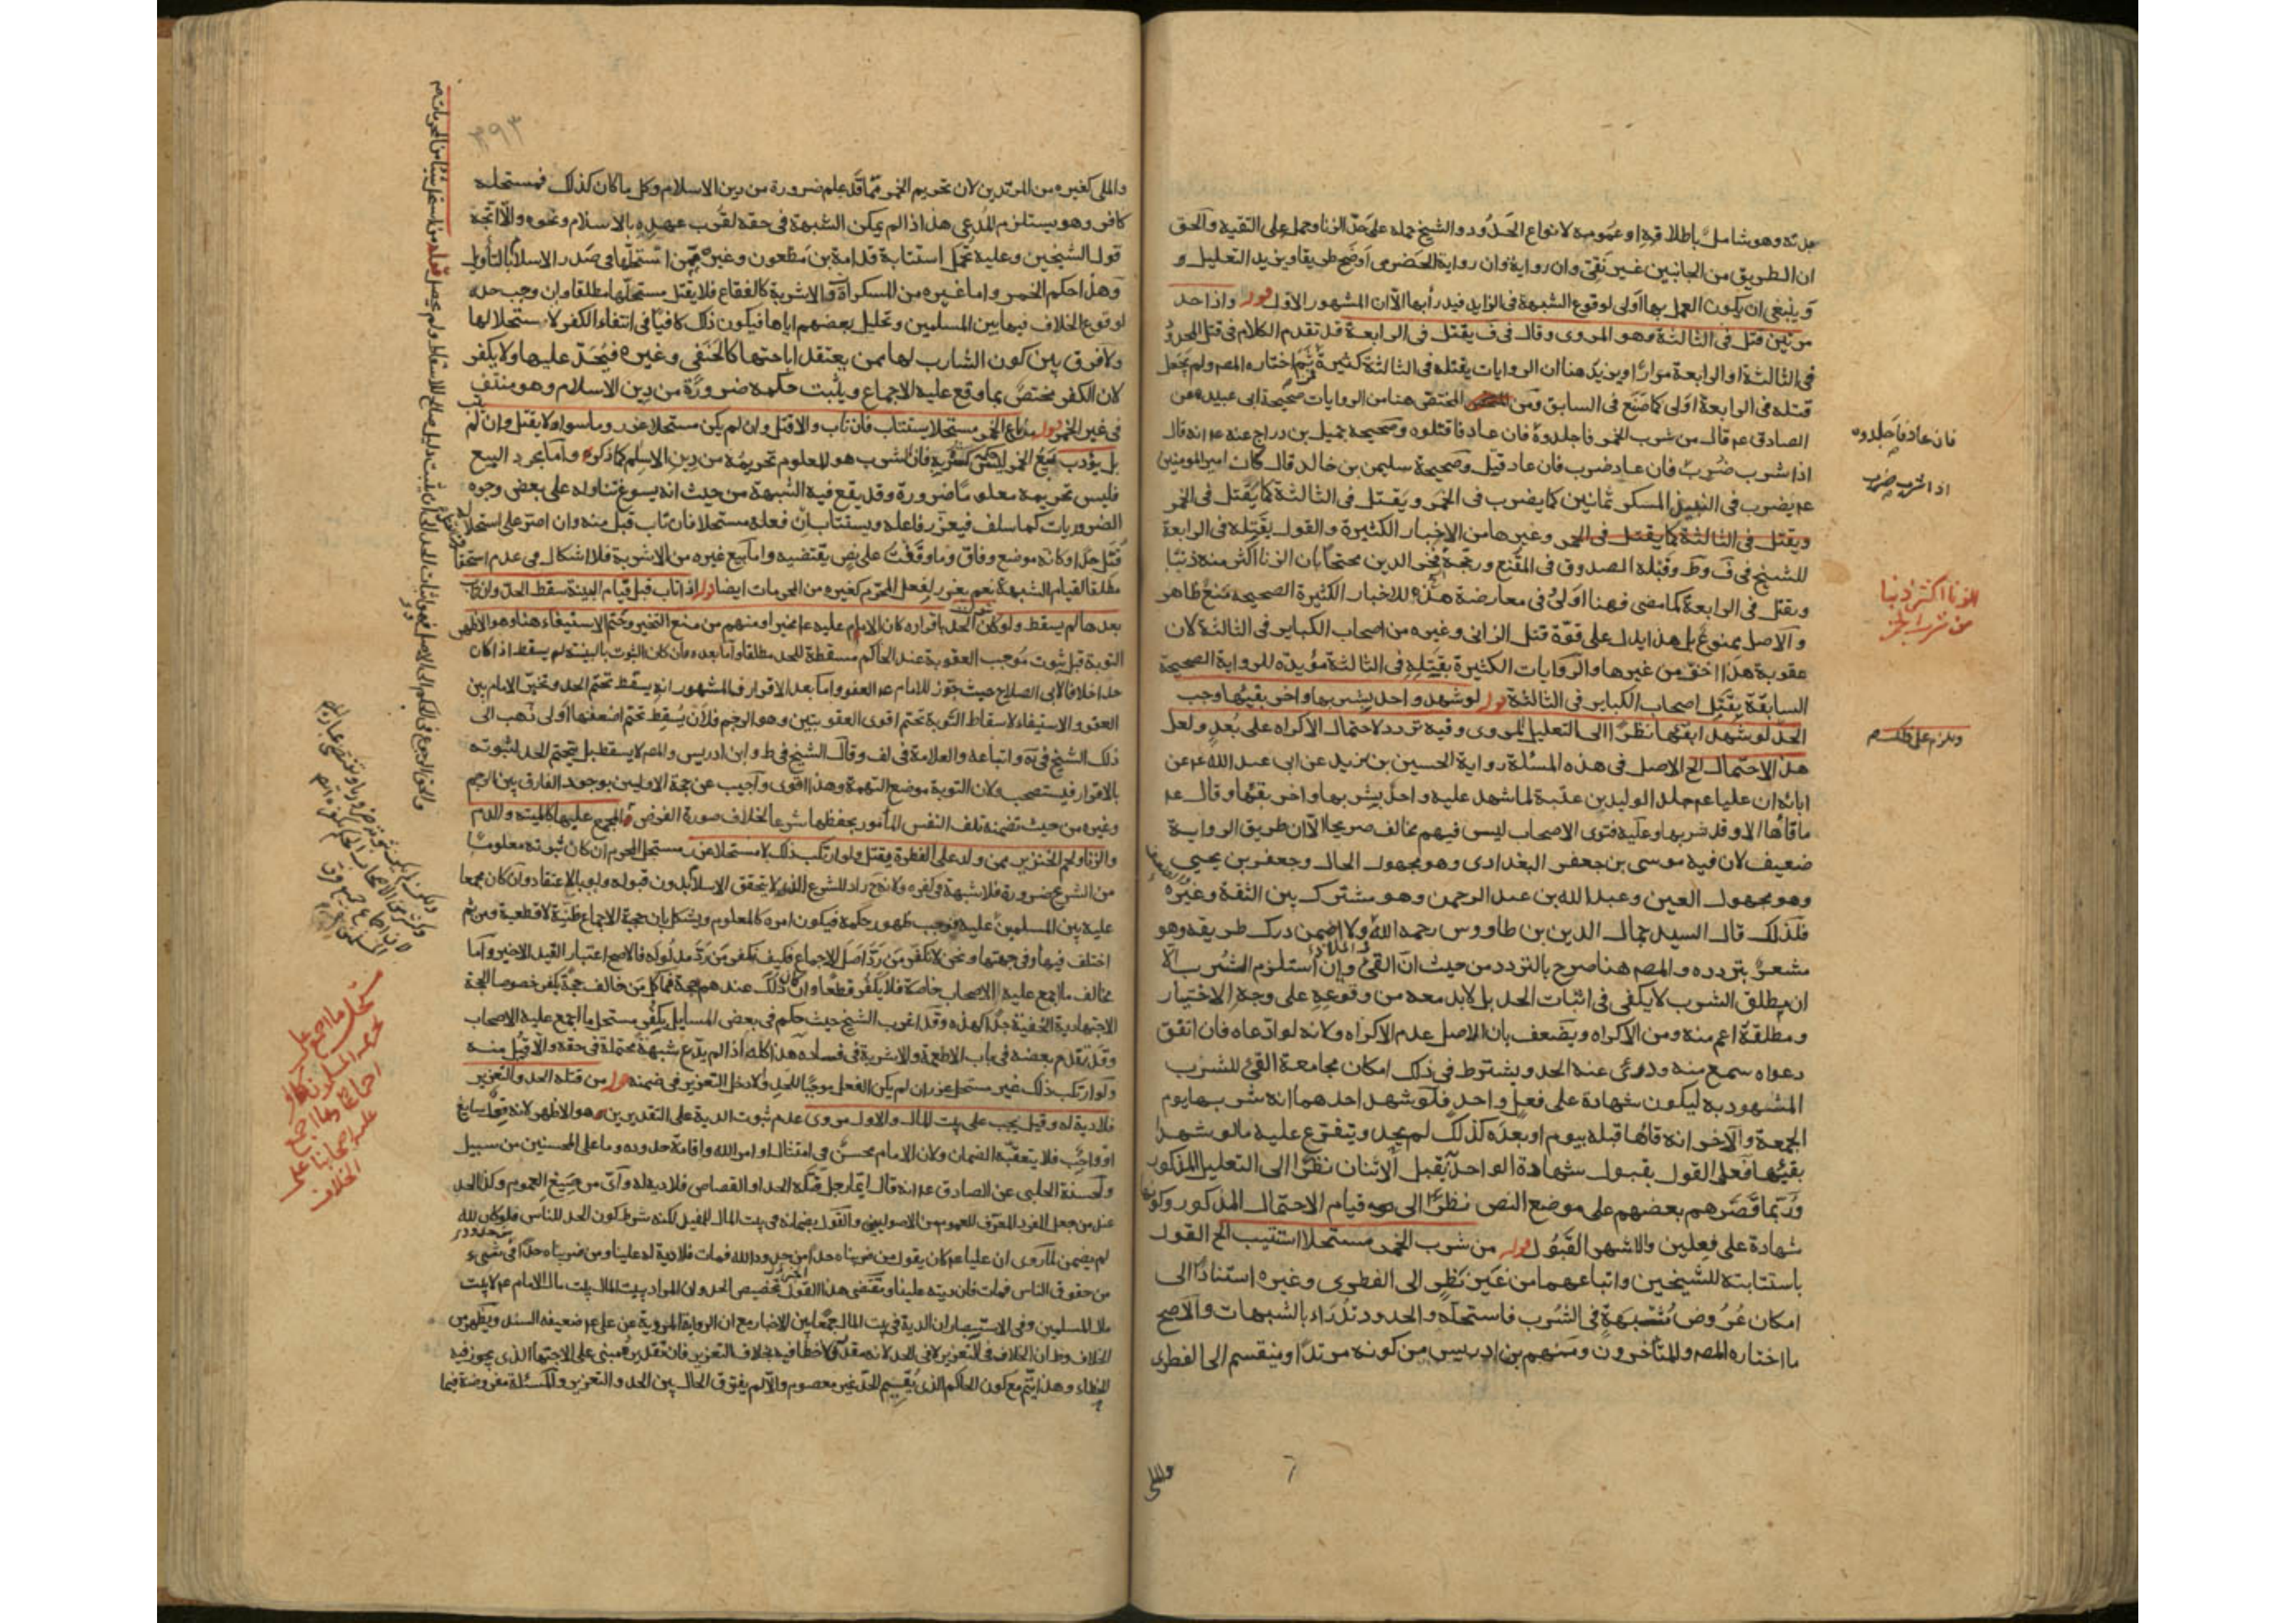 جلدته وهو شامل باطلاقه او عمومه لانواع الحدود والشيخ حمله على حد الزنا وحمل على التقية والحق
ان الطريق من الجانبين غير نقى وان رواية وان رواية الحضرمى اوضح طريقا ويزيد التعليل و
وينبغى ان يكون العمل بها اولى لوقوع الشبهة فى الزايد فيدرأ بها الا ان المشهور الاول قوله واذا حد
مرتين قتل فى الثالثة وهو المروى وقال فى ف يقتل فى الرابعة قد تقدم الكلام فى قتل المحدود
فى الثالثة او الرابعة مرارا ويزيد هنا ان الروايات بقتله فى الثالثة كثيرة فمن ثم اختاره المصه ولم يجعل
قتله فى الرابعة اولى كما صنع فى السابق ومن المختص هنا من الروايات صحيحة ابى عبيدة عن
الصادق عم قال من شرب الخمر فاجلدوه فان عاد فاقتلوه وصحيحة جميل بن دراج عنه عم انه قال
اذا شرب ضرب فان عاد ضرب فان عاد قتل وصحيحة سليمن بن خالد قال كان امير المومنين
عم يضرب فى النبيذ المسكر ثمانين كما يضرب فى الخمر ويقتل فى الثالثة كما يقتل فى الخمر
ويقتل فى الثالثة كما يقتل فى الخمر وغيرها من الاخبار الكثيرة والقول بقتله فى الرابعة
للشيخ فى ف وط وقبله الصدوق فى المقنع ورجحه فخر الدين محتجا بان الزنا اكثر منه ذنبا
ويقتل فى الرابعة كما مضى فهنا اولى وفى معارضة هذه للاخبار الكثيرة الصحيحة منع ظاهر
والاصل ممنوع بل هذا يدل على قوة قتل الزانى وغيره من اصحاب الكباير فى الثالثة لان
عقوبة هذا اخف من غيرها والروايات الكثيرة بقتله فى الثالثة مؤيدة للرواية الصحيحة
السابقة بقتل اصحاب الكباير فى الثالثة قوله لو شهد واحد بشربها واخر بقيئها وجب
الحد لو شهدا بقيئها نظرا الى التعليل المروى وفيه تردد لاحتمال الاكراه على بعد ولعل
هذا الاحتمال الخ الاصل فى هذه المسئلة رواية الحسين بن يزيد عن ابى عبد الله عم عن
ابائه ان عليا عم جلد الوليد بن عقبة لما شهد عليه واحد بشربها واخر بقيئها وقال عم
ما قاءها الا وقد شربها وعليه فتوى الاصحاب ليس فيهم مخالف صريحا الا ان طريق الرواية
ضعيف لان فيه موسى بن جعفر البغدادى وهو مجهول الحال وجعفر بن يحيى
وهو مجهول العين وعبد الله بن عبد الرحمن وهو مشترك بين الثقة وغيره
فلذلك قال السيد جمال الدين بن طاووس رحمه الله ولا اضمن درك طريقه وهو
مشعر بتردده والمصه هنا صرح بالتردد من حيث ان القئ وان استلزم الشرب الا
ان مطلق الشرب لا يكفى فى اثبات الحد بل لابد معه من وقوعه على وجه الاختيار
ومطلقة اعم منه ومن الاكراه ويضعف بان الاصل عدم الاكراه ولانه لو ادعاه فان اتفق
دعواه سمع منه ودرئ عنه الحد ويشترط فى ذلك امكان مجامعة القئ للشرب
المشهود به ليكون شهادة على فعل واحد فلو شهد احدهما انه شربها يوم
الجمعة والآخر انه قاءها قبله بيوم او بعده كذلك لم يحد ويتفرع عليه ما لو شهدا
بقيئها فعلى القول بقبول شهادة الواحد تقبل الاثنان نظرا الى التعليل المذكور
وربما قصرهم بعضهم على موضع النص نظرا الى قيام الاحتمال المذكور وكونها
شهادة على فعلين والاشهر القبول قوله من شرب الخمر مستحلا استتيب الخ القول
باستتابته للشيخين واتباعهما من غير نظر الى الفطرى وغيره استنادا الى
امكان عروض شبهة فى الشرب فاستحله والحدود تدراء بالشبهات والاصح
ما اختاره المصه والمتأخرون ومنهم بن ادريس من كونه مرتدا وينقسم الى الفطرى
والملى
فان عاد فاجلدوه
اذا شرب ضرب
الزنا اكثر ذنبا
من شرب الخمر
٣٩٣
والملى كغيره من المرتدين لان تحريم الخمر مما قد علم ضرورة من دين الاسلام وكل ما كان كذلك فمستحله
كافر وهو يستلزم المدعى هذا اذا لم يمكن الشبهة فى حقه لقرب عهده بالاسلام ونحوه والا اتجه
قول الشيخين وعليه تحمل استتابة قدامة بن مظعون وغيره ممن استحلها فى صدر الاسلام بالتأويل
وهذا حكم الخمر واما غيره من المسكرات والاشربة كالفقاع فلا يقتل مستحلها مطلقا وان وجب حده
لوقوع الخلاف فيها بين المسلمين وتحليل بعضهم اياها فيكون ذلك كافيا فى انتفاء الكفر لاستحلالها
ولا فرق بين كون الشارب لها ممن يعتقد اباحتها كالحنفى وغيره فيحد عليها ولا يكفر
لان الكفر مختص بما وقع عليه الاجماع ويثبت حكمه ضرورة من دين الاسلام وهو منتف
فى غير الخمر قوله من باع الخمر مستحلا يستتاب فان تاب والا قتل وان لم يكن مستحلا عزر وما سواه لا يقتل وان لم
بل يؤدب بيع الخمر ليس كشربه فان الشرب هو المعلوم تحريمه من دين الاسلام كما ذكر واما مجرد البيع
فليس تحريمه معلوما ضرورة وقد يقع فيه الشبهة من حيث انه يسوغ تناوله على بعض وجوه
الضروريات كما سلف فيعزر فاعله ويستتاب ان فعله مستحلا فان تاب قبل منه وان اصر على استحلاله
قتل حدا وكانه موضع وفاق وما وقفت على نص يقتضيه واما بيع غيره من الاشربة فلا اشكال فى عدم استحقاقه
مطلقا لقيام الشبهة نعم يعزر لفعل المحرم كغيره من المحرمات ايضا قوله اذا تاب قبل قيام البينة سقط الحد وان كان
بعدها لم يسقط ولو كان الحد باقراره كان الامام عليه عم مخيرا ومنهم من منع التخير وحتم الاستيفاء هنا وهو الاظهر
التوبة قبل ثبوت موجب العقوبة عند الحاكم مسقطة للحد مطلقا واما بعده فان كان الثبوت بالبينة لم يسقط اذا كان
حدا خلافا لابى الصلاح حيث جوز للامام عم العفو واما بعد الاقرار فالمشهور انه يسقط تحتم الحد وتخير الامام بين
العفو والاستيفاء لاسقاط التوبة تحتم اقوى العقوبتين وهو الرجم فلان يسقط تحتم اضعفهما اولى ذهب الى
ذلك الشيخ فى ية واتباعه والعلامة فى لف وقال الشيخ فى ط وابن ادريس والمصه لا يسقط بل يتحتم الحد لثبوته
بالاقرار فيستصحب ولان التوبة موضع التهمة وهذا اقوى واجيب عن حجة الاولين بوجود الفارق بين الرجم
وغيره من حيث تضمنه تلف النفس المأمور بحفظها شرعا بخلاف صورة الفرض المجمع عليها كالميتة والدم
والزنا ولحم الخنزير ممن ولد على الفطرة يقتل ولو ارتكب ذلك لا مستحلا عزر مستحل المحرم ان كان ثبوته معلوما
من الشرع ضرورة فلا شبهة فى كفره ولانه راد للشرع الذى لا يتحقق الاسلام بدون قبوله ولو بالاعتقاد وان كان مجمعا
عليه بين المسلمين عليه فوجب ظهور حكمه فيكون امره كالمعلوم ويشكل بان حجية الاجماع ظنية لا قطعية ومن ثم
اختلف فيها وفى جهتها ونحن لا نكفر من رد اصل الاجماع فكيف نكفر من رد مدلوله فالاصح اعتبار القيد الاخير واما
مخالف ما اجمع عليه الاصحاب خاصة فلا يكفر قطعا وان كان ذلك عندهم حجة فما كل من خالف حجة يكفر خصوصا الحجة
الاجتهادية الخفية جدا كهذه وقد اغرب الشيخ حيث حكم فى بعض المسايل بكفر مستحل ما اجمع عليه الاصحاب
وقد تقدم بعضه فى باب الاطعمة والاشربة فى فساده هذا كله اذا لم يدع شبهة محتملة فى حقه والا قبل منه
ولو ارتكب ذلك غير مستحل عزر ان لم يكن الفعل موجبا للحد والا دخل التعزير فى ضمنه قوله من قتله الحد والتعزير
فلا دية له وقيل يجب على بيت المال والاول مروى عدم ثبوت الدية على التقديرين هو الاظهر لانه فعل سايغ
او واجب فلا يتعقبه الضمان ولان الامام محسن فى امتثال اوامر الله واقامة حدوده وما على المحسنين من سبيل
ولحسنة الحلبى عن الصادق عم انه قال ايما رجل قتله الحد او القصاص فلا دية له واى من صيغ العموم وكذا الحد
عند من جعل المفرد المعرف للعموم من الاصوليين والقول بضمانه فى بيت المال للمفيد لكنه شرط كون الحد للناس فلو كان لله
لم يضمن لما روى ان عليا عم كان يقول من ضربناه حدا من حدود الله فمات فلا دية له علينا ومن ضربناه حدا فى شىء
من حقوق الناس فمات فان ديته علينا ويقتضى هذا القول تخصيص الحد وان المراد ببيت المال بيت مال الامام عم لا بيت
مال المسلمين وفى الاستبصار ان الدية فى بيت المال جمعا بين الاخبار مع ان الرواية المروية عن على عم ضعيفة السند ويظهر من
الخلاف وط ان الخلاف فى التعزير لا فى الحد لانه مقدر فلا خطأ فيه بخلاف التعزير فان تقديره مبنى على الاجتهاد الذى يجوز فيه
الخطاء وهذا يتم مع كون الحاكم الذى يقيم الحد غير معصوم والا لم يفترق الحال بين الحد والتعزير والمسئلة مفروضة فيما
مستحل ما اجمع على
تحريمه المسلمون كافر
اجماعا وما اجمع
عليه اصحابنا على
الخلاف